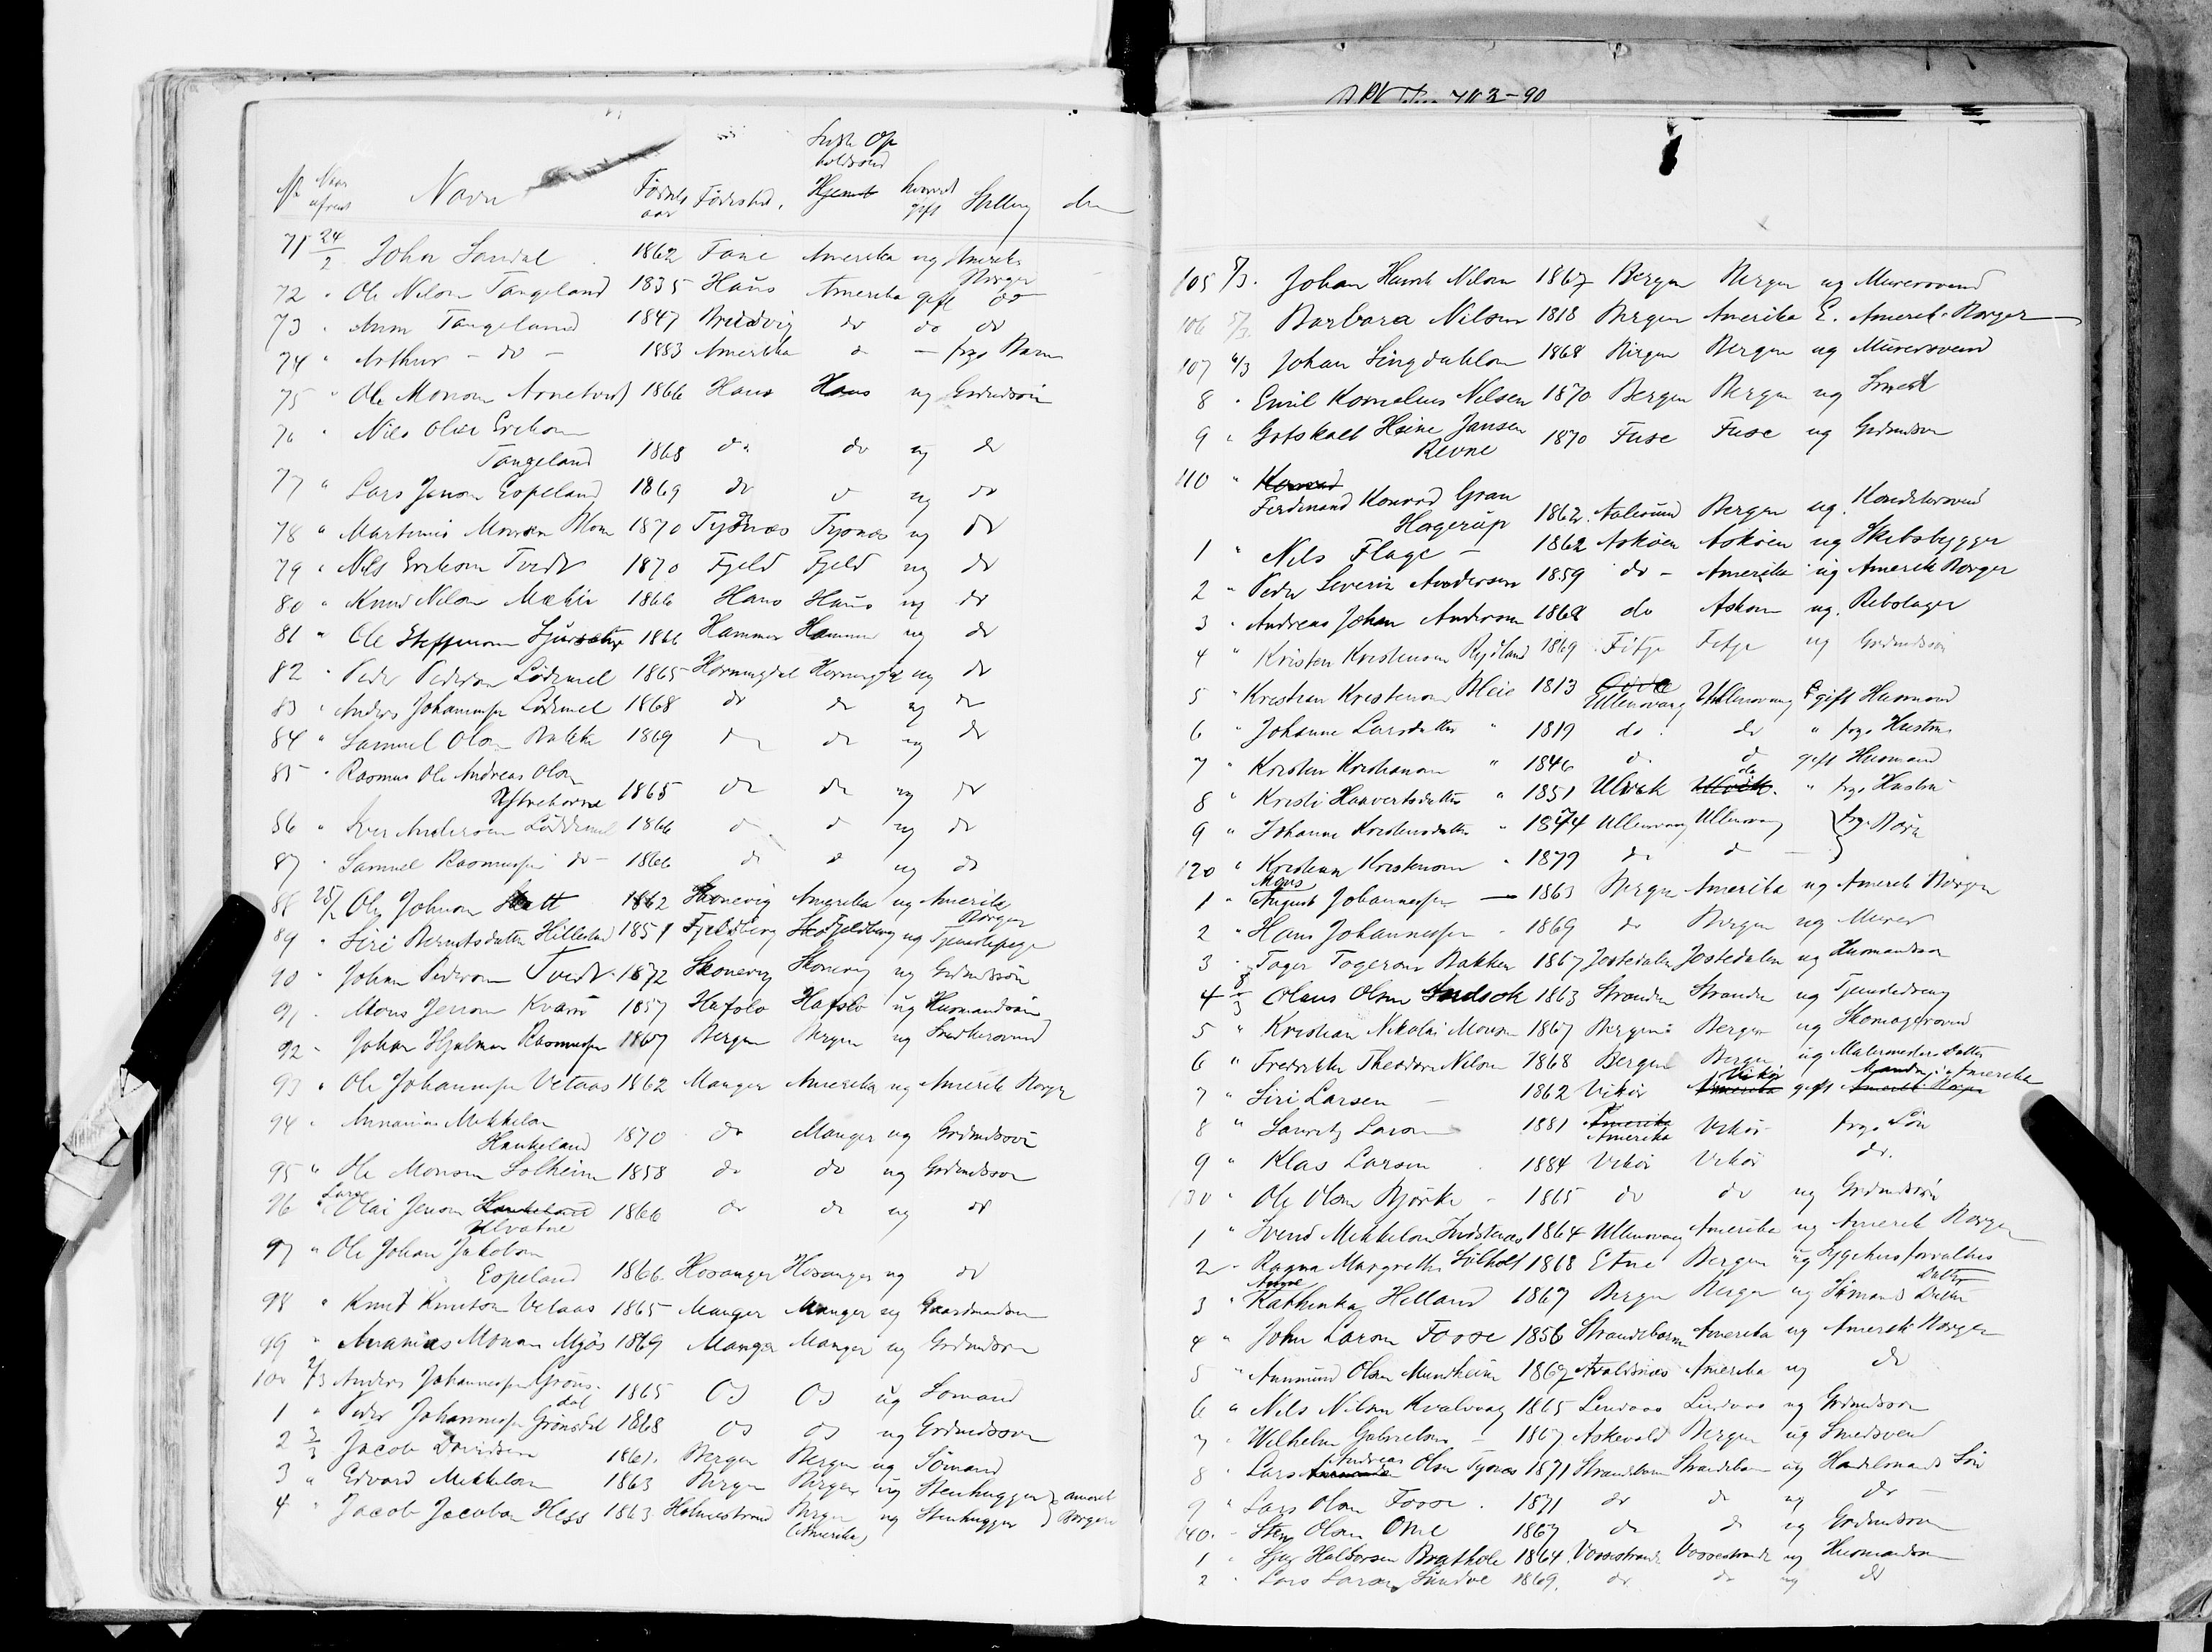 Sidste Op
holdssted
No Naar afreist Navn Fødsels aar Fødested. Hjemst hvorvidt gift Stilling
71 24/2 John Sandal 1862 Fane Amerika ug Amerik Borger
72 " Ole Nilsen Tangeland 1835 Haus Amerika gift do
73 " Anna Tangeland 1847 do do do
74 " Arthur - do - 1883 Amerika do - Barn
75 " Ole Monsen 1866 Haus Haus ug Grdmdssøn
76 " Nils Olai Eriksen
Tangeland 1868 do do ug do
77 " Lars Jensen Espeland 1869 do do ug do
78 " Martinus Monsen 1870 Tysnæs Tysnæs ug do
79 " Nils Eriksen Tvedt 1870 Fjeld Fjeld ug do
80 " Knud Nilsen 1866 Haus Haus ug do
81 " Ole Steffensen 1866 Hammer Hammer ug do
82 " Peder Pedersen Lødemel 1865 Horningdal Horningdal ug do
83 " Anders Johannessen Lødemel 1868 do do ug do
84 " Samuel Olsen 1869 do do ug do
85 " Rasmus Ole Andreas Olsen
1865 do do ug do
86 " Iver Andersen Lødemel 1866 do do ug do
87 " Samuel Rasmussen do - 1866 do do ug do
88 25/2 Ole Johnson 1862 Skonevig Amerika ug Amerik Borger
89 " Siri Berntsdatter Hillestad 1851 Fjeldberg Fjeldberg ug Tjenestepige
90 " Johan Pederson Tvedt 1872 Skonevig Skonevig ug Grdmdssøn
91 " Mons Jenson 1857 Hafslo Hafslo ug Husmandssøn
92 " Johan Hjalmar Rasmussen 1867 Bergen Bergen ug Snedkersvend
93 " Ole Johannessen Vetaas 1862 Manger Amerika ug Amerik Borger
94 " Annanias Mikkelsen
Haukeland 1870 do Manger ug Grdmdssøn
95 " Ole Monsen Solheim 1858 do do ug Grdmdssøn
96 " Lars Olai Jenson Haukeland
Ulvatne 1866 do do ug do
97 " Ole Johan Jakobsen
Espeland 1866 Hosanger Hosanger ug do
98 " Knut Knutson Vetaas 1865 Manger Manger ug Gaardmandsøn
99 " Ananias Monsen Mjøs 1869 Manger Manger ug Grdmdssøn
100 2/3 Anders Johannessen Grønsdal 1865 Os Os ug Sømand
1 " Peder Johannessen Grønsdal 1868 Os Os ug Grdmdssøn
2 3/3 Jacob Davidsen 1861 Bergen Bergen ug Sømand
3 " Edvard Mikkelsen 1863 Bergen Bergen ug Stenhugger } amerik
4 " Jacob Jacobsen Hess 1863 Holmestrand Bergen ug Stenhugger } Borgere
(Amerika)
105 5/3 Johan Henrik Nilsen 1867 Bergen Bergen ug Murersvend
106 5/3 Barbara Nilsen 1818 Bergen Amerika E. Amerik Borger
107 6/3 Johan Lingdahlsen 1868 Bergen Bergen ug Murersvend
8 " Emil Kornelius Nilsen 1870 Bergen Bergen ug
9 " Gotskalk Heine Jansen
Revne 1870 Fuse Fuse ug Grdmdssøn
110 " Konrad
Ferdinand Konrad Gran
Hagerup 1862 Aalesund Bergen ug. Konditorsvend
1 " Nils Flage - 1862 Askøen Askøen ug Skibsbygger
2 " Peder Severin Andersen 1859 do - Amerika ug Amerik Borger
3 " Andreas Johan Anderson 1868 do Askøen ug. Rebslager
4 " Kristen Kristensen 1869 Fitje Fitje ug Grdmdssøn
5 " Kristian Kristenson Bleie 1813 Ullensvang Ullensvang gift Husmand
6 " Johanne Larsdatter " 1819 do do " Hustru
7 " Kristen Kristianson " 1846 do do gift Husmand
8 " Kristi Haavertsdatter " 1851 Ulvik Ulvik do " Hustru
9 " Johanne Kristensdatter " 1874 Ullensvang Ullensvang } Børn
120 " Kristian Kristensen " 1879 do do - }
1 " Mons August Johannessen — 1863 Bergen Amerika ug Amerik Borger
2 " Hans Johannessen " 1869 do Bergen ug Murer
3 " Tøger Tøgerson Bakken 1867 Jostedalen Jostedalen ug Husmandssøn
4 8/3 Olaus Olsen 1863 Stranden Stranden ug Tjenestedreng
5 " Kristian Nikolai Monsen 1867 Bergen Bergen ug Skomagersvend
6 " Fredrikke Theodora Nilsen 1868 Bergen Bergen ug Malermesters Datter
7 " Siri Larsen - 1862 Vikør Amerika Vikør gift Amerik Borger Mand i Amerika
8 " Lauritz Larsen 1881 Amerika Amerika Vikør Søn
9 " Klas Larsen 1884 Vikør Vikør do.
130 " Ole Olsen Bjørke - 1865 do do ug Grdmdssøn
1 " Svend Mikkelsen 1864 Ullensvang Amerika ug Amerik Borger
2 " Ragna Margrethe 1868 Etne Bergen ug Sygehusforvalters Datter
3 " Kathinka Helland 1867 Bergen Bergen ug Sømands Datter
4 " John Larsen Fosse 1856 Strandebarm Amerika ug Amerik Borger
5 " Anmund Olsen Mundheim 1867 Avaldsnæs Amerika ug do
6 " Nils Nilsen Kvalvaag 1865 Lindaas Lindaas ug Grdmdssøn
7 " Wilhelm Gabrielsen - 1867 Askevold Bergen ug Smedsvend
8 " Lars Andreas Olsen Tysnæs 1871 Strandebarm Strandebarm ug Handelsmands Søn
9 " Lars Olsen Fosse. 1871 do do ug do -
140. " Sten Olsen Ome 1867 do do ug Grdmdssøn
1 " Sjur Halvorsen Brathole 1864 Vossestrand Vossestrand ug Husmandssøn
2 " Lars Larsen Sundve 1869. do do ug do